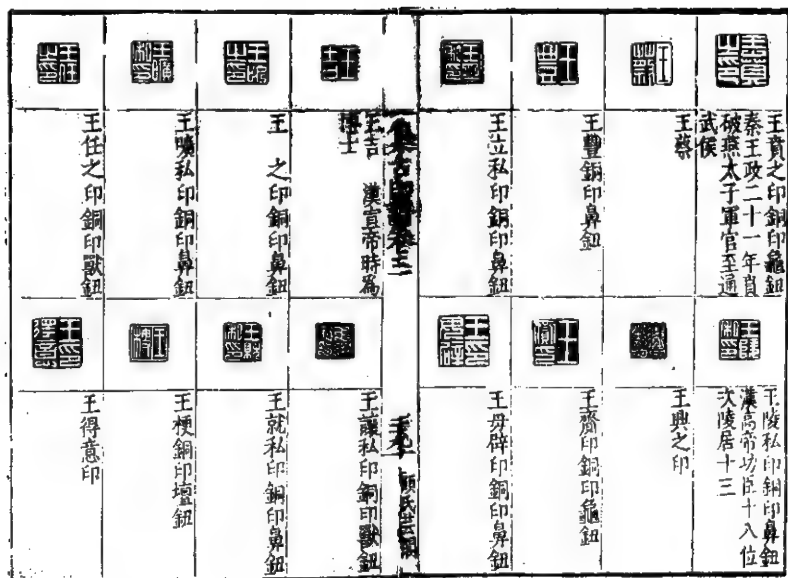 王賁之印銅印龜鈕
秦王政二十一年賁
破燕太子軍官至通
武侯
王蔡
王豐銅印鼻鈕
王立私印銅印鼻鈕
王陵私印銅印鼻鈕
漢高帝功臣十八位
次陵居十三
王興之印
王齎印銅印龜鈕
王毋辟印銅印鼻鈕
集古印譜卷之二
顧氏芸閣
王吉 漢宣帝時為
博士
王 之印銅印鼻鈕
王曠私印銅印鼻鈕
王任之印銅印獸鈕
王讓私印銅印獸鈕
王就私印銅印鼻鈕
王梗銅印壇鈕
王得意印